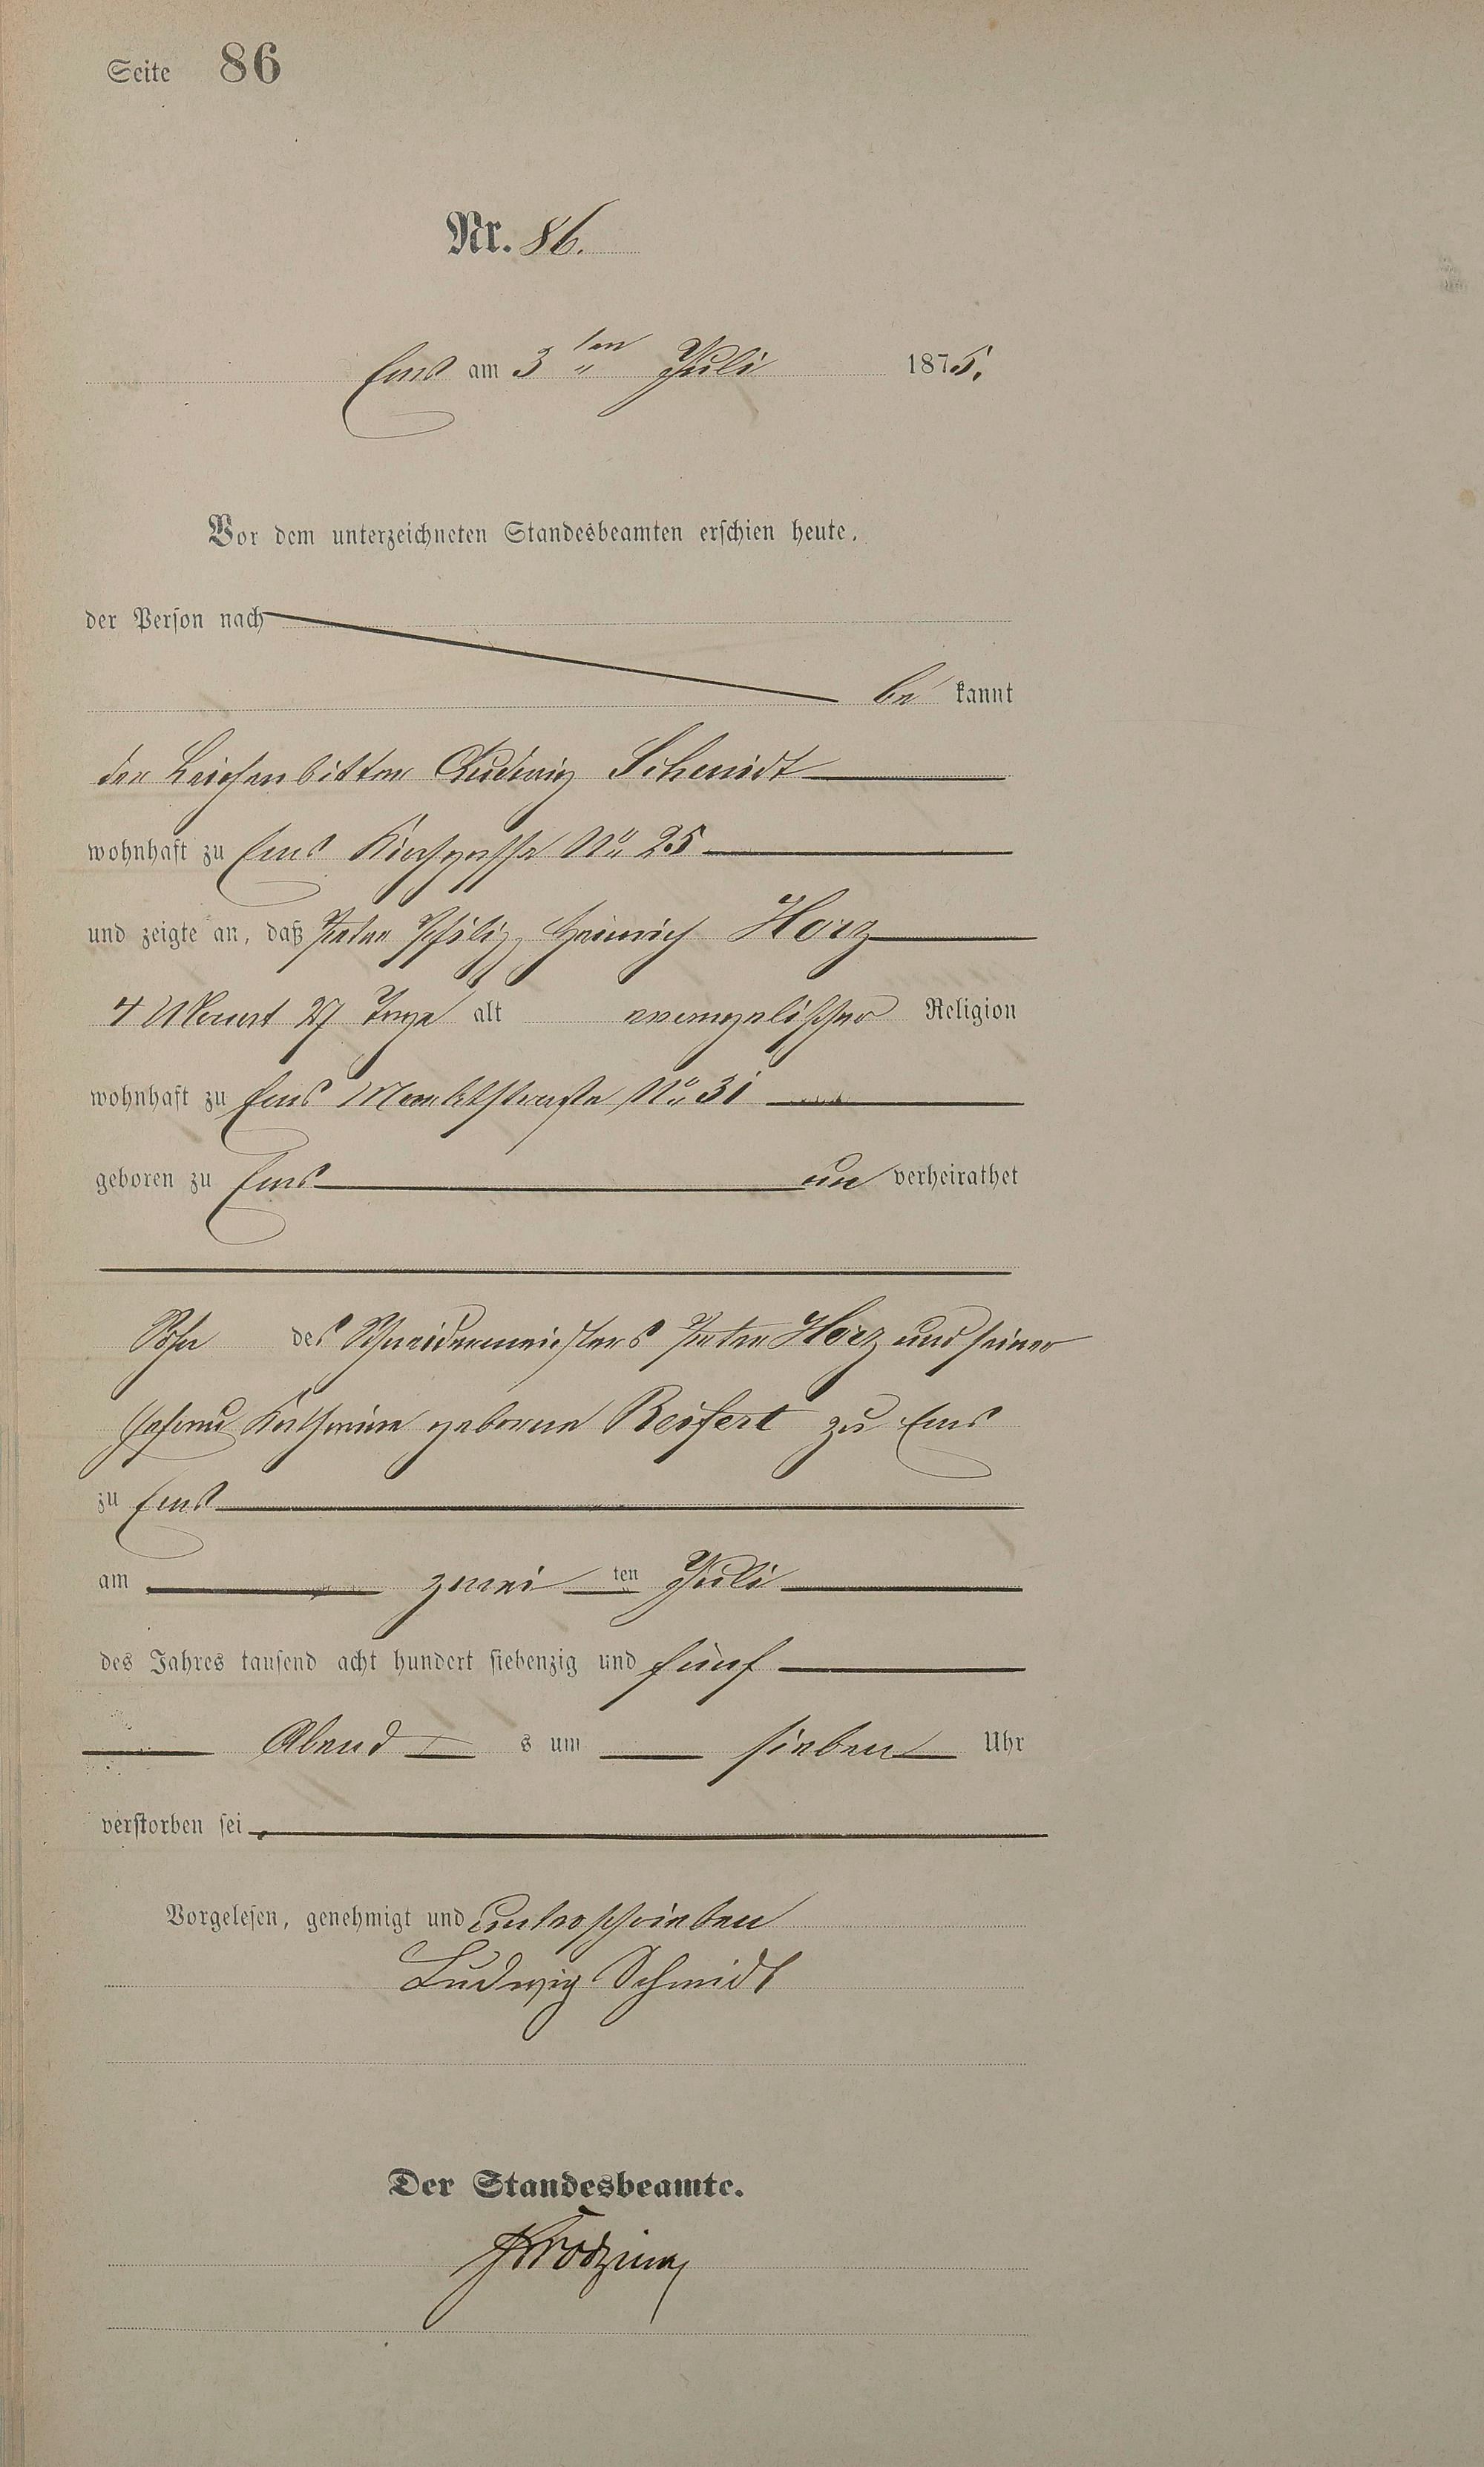 Seite 86
Nr. 86.
Ems am 3ten Juli 1875.
Vor dem unterzeichneten Standesbeamten erschien heute,
der Person nach
be kannt
der Leichenbitter Ludwig Schmidt
wohnhaft zu Ems Kirchgasse No 25
und zeigte an, daß Peter Philipp Heinrich Horz
4 Monat 27 Tage alt evangelischer Religion
wohnhaft zu Ems Marktstraße No 31
geboren zu Ems un verheirathet
Sohn des Schneidermeisters Peter Horz und seiner
Ehefrau Katharine geborne Reifert zu Ems
zu Ems
am zwei ten Juli
des Jahres tausend acht hundert siebenzig und fünf
Abend s um sieben Uhr
verstorben sei
Vorgelesen, genehmigt und unterschrieben
Ludwig Schmidt
Der Standesbeamte.